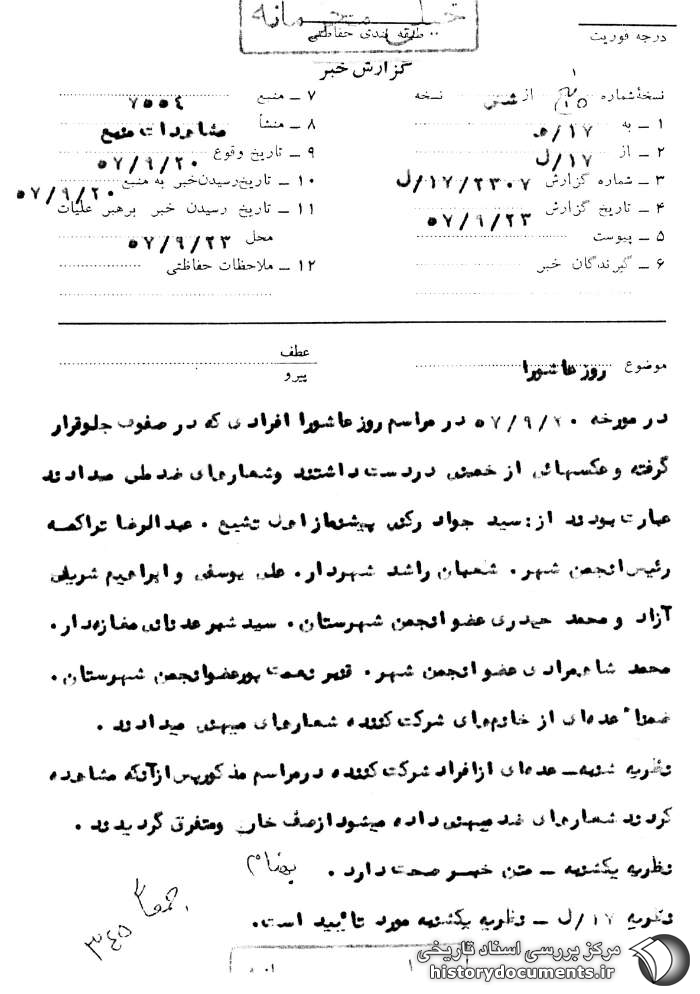 خیلی محرمانه
طبقه بندی حفاظتی
درجه فوریت
گزارش خبر
نسخهٔ شماره ۱ از نسخه
۱ ـ به ۱۷/ه
۲ ـ از ۱۷/ل
۳ ـ شماره گزارش ۱۷/۲۳۰۷/ل
۴ ـ تاریخ گزارش ۵۷/۹/۲۳
۵ ـ پیوست
۶ ـ گیرندگان خبر
۷ ـ منبع ۷۵۵٤
۸ ـ منشأ مشاهدات منبع
۹ ـ تاریخ وقوع ۵۷/۹/۲۰
۱۰ ـ تاریخ رسیدن خبر به منبع ۵۷/۹/۲۰
۱۱ ـ تاریخ رسیدن خبر برهبر عملیات
محل ۵۷/۹/۲۳
۱۲ ـ ملاحظات حفاظتی
موضوع روز عاشورا
عطف
پیرو
در مورخه ۵۷/۹/۲۰ در مراسم روز عاشورا افرادی که در صفوف جلو قرار
گرفته و عکسهائی از خمینی در دست داشتند و شعارهای ضد ملی میدادند
عبارت بودند از: سید جواد رکنی پیشنماز اهل تشیع . عبدالرضا تراکمه
رئیس انجمن شهر . شعبان راشد شهردار . علی یوسفی و ابراهیم شریفی
آزاد و محمد حیدری عضو انجمن شهرستان . سید شهر عدنانی مغازه‌دار .
محمد شاهمرادی عضو انجمن شهر . قنبر نعمت پور عضو انجمن شهرستان .
ضمناً عده‌ای از خانم‌های شرکت کننده شعارهای میهنی میدادند .
نظریه شنبه ـ عده‌ای از افراد شرکت کننده در مراسم مذکور پس از آنکه مشاهده
کردند شعارهای ضد میهنی داده میشود از صف خارج و متفرق گردیدند .
نظریه یکشنبه ـ متن خبر صحت دارد .
نظریه ۱۷/ل ـ نظریه یکشنبه مورد تائید است .
مرکز بررسی اسناد تاریخی
historydocuments.ir